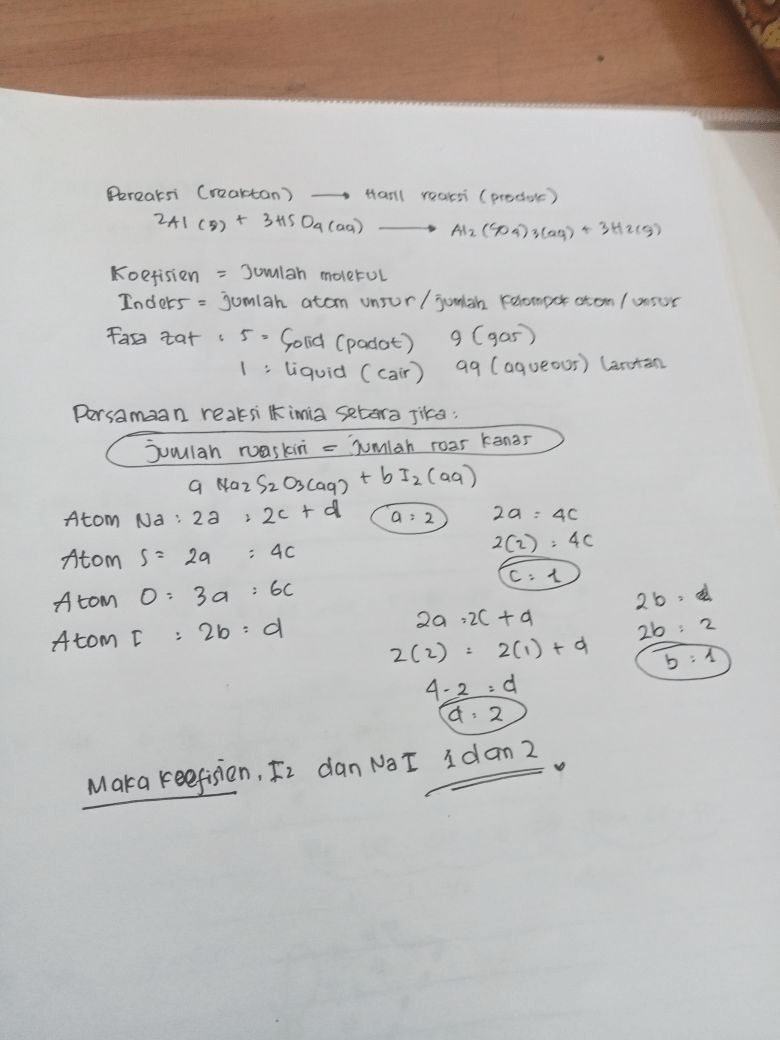 Pereaksi (reaktan) → Hasil reaksi (produk)
2Al (s) + 3HSO4(aq) → Al2(SO4)3(aq) + 3H2(g)
Koefisien = Jumlah molekul
Indeks = jumlah atom unsur / jumlah kelompok atom / unsur
Fasa zat : s = Solid (padat) g (gas)
l : liquid (cair) aq (aqueous) larutan
Persamaan reaksi Kimia setara jika :
Jumlah ruas kiri = jumlah ruas kanan
a Na2 S2 O3(aq) + b I2 (aq)
Atom Na : 2a : 2c + d (a = 2) 2a = 4c
Atom S = 2a : 4c 2(2) : 4c
(c : 1)
Atom O : 3a : 6c 2b : d
Atom I : 2b = d 2a : 2c + d 2b : 2
2(2) = 2(1) + d b : 1
4 - 2 : d
d : 2
Maka koefisien, I2 dan NaI 1 dan 2.